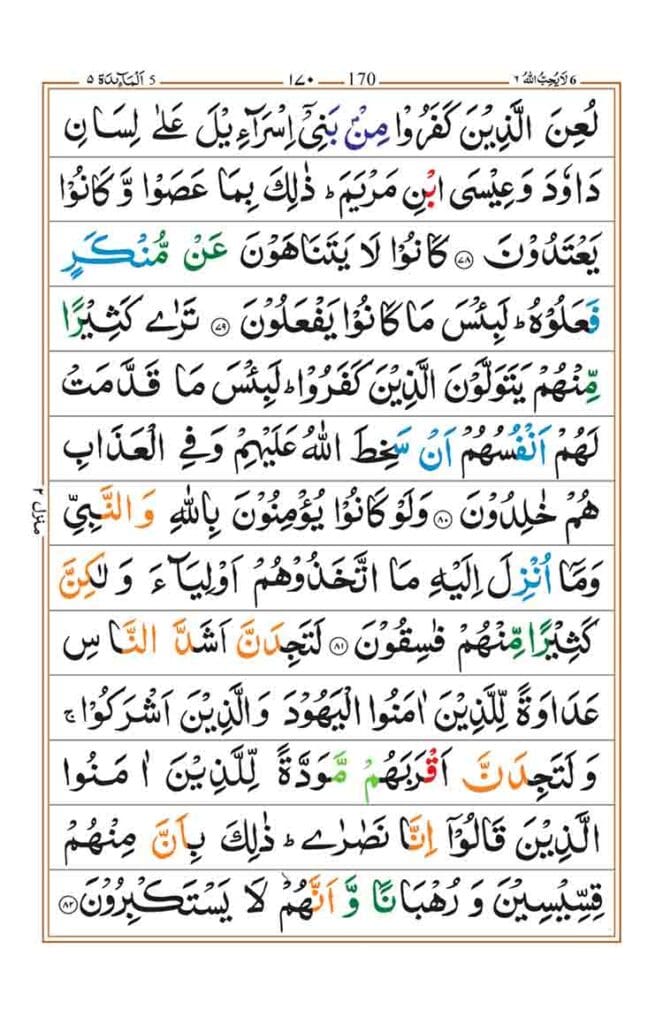 ٥ اَلْمَآئِدَة 5 ١٧٠ 170 ٦ لَا يُحِبُّ اللهُ 6
لُعِنَ الَّذِيْنَ كَفَرُوْا مِنْۢ بَنِيْۤ اِسْرَآءِيْلَ عَلٰى لِسَانِ
دَاوٗدَ وَعِيْسَى ابْنِ مَرْيَمَ ؕ ذٰلِكَ بِمَا عَصَوْا وَّكَانُوْا
يَعْتَدُوْنَ ﴿۷۸﴾ كَانُوْا لَا يَتَنَاهَوْنَ عَنْ مُّنْكَرٍ
فَعَلُوْهُ ؕ لَبِئْسَ مَا كَانُوْا يَفْعَلُوْنَ ﴿۷۹﴾ تَرٰى كَثِيْرًا
مِّنْهُمْ يَتَوَلَّوْنَ الَّذِيْنَ كَفَرُوْا ؕ لَبِئْسَ مَا قَدَّمَتْ
لَهُمْ اَنْفُسُهُمْ اَنْ سَخِطَ اللهُ عَلَيْهِمْ وَفِي الْعَذَابِ
هُمْ خٰلِدُوْنَ ﴿۸۰﴾ وَلَوْ كَانُوْا يُؤْمِنُوْنَ بِاللهِ وَالنَّبِيِّ
وَمَاۤ اُنْزِلَ اِلَيْهِ مَا اتَّخَذُوْهُمْ اَوْلِيَآءَ وَلٰكِنَّ
كَثِيْرًا مِّنْهُمْ فٰسِقُوْنَ ﴿۸۱﴾ لَتَجِدَنَّ اَشَدَّ النَّاسِ
عَدَاوَةً لِّلَّذِيْنَ اٰمَنُوا الْيَهُوْدَ وَالَّذِيْنَ اَشْرَكُوْا ۚ
وَلَتَجِدَنَّ اَقْرَبَهُمْ مَّوَدَّةً لِّلَّذِيْنَ اٰمَنُوا
الَّذِيْنَ قَالُوْۤا اِنَّا نَصٰرٰى ؕ ذٰلِكَ بِاَنَّ مِنْهُمْ
قِسِّيْسِيْنَ وَرُهْبَانًا وَّاَنَّهُمْ لَا يَسْتَكْبِرُوْنَ ﴿۸۲﴾
منزل ٢